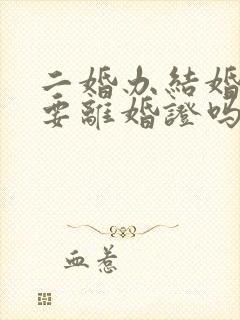 二婚办结婚
要離婚證吗
血惹